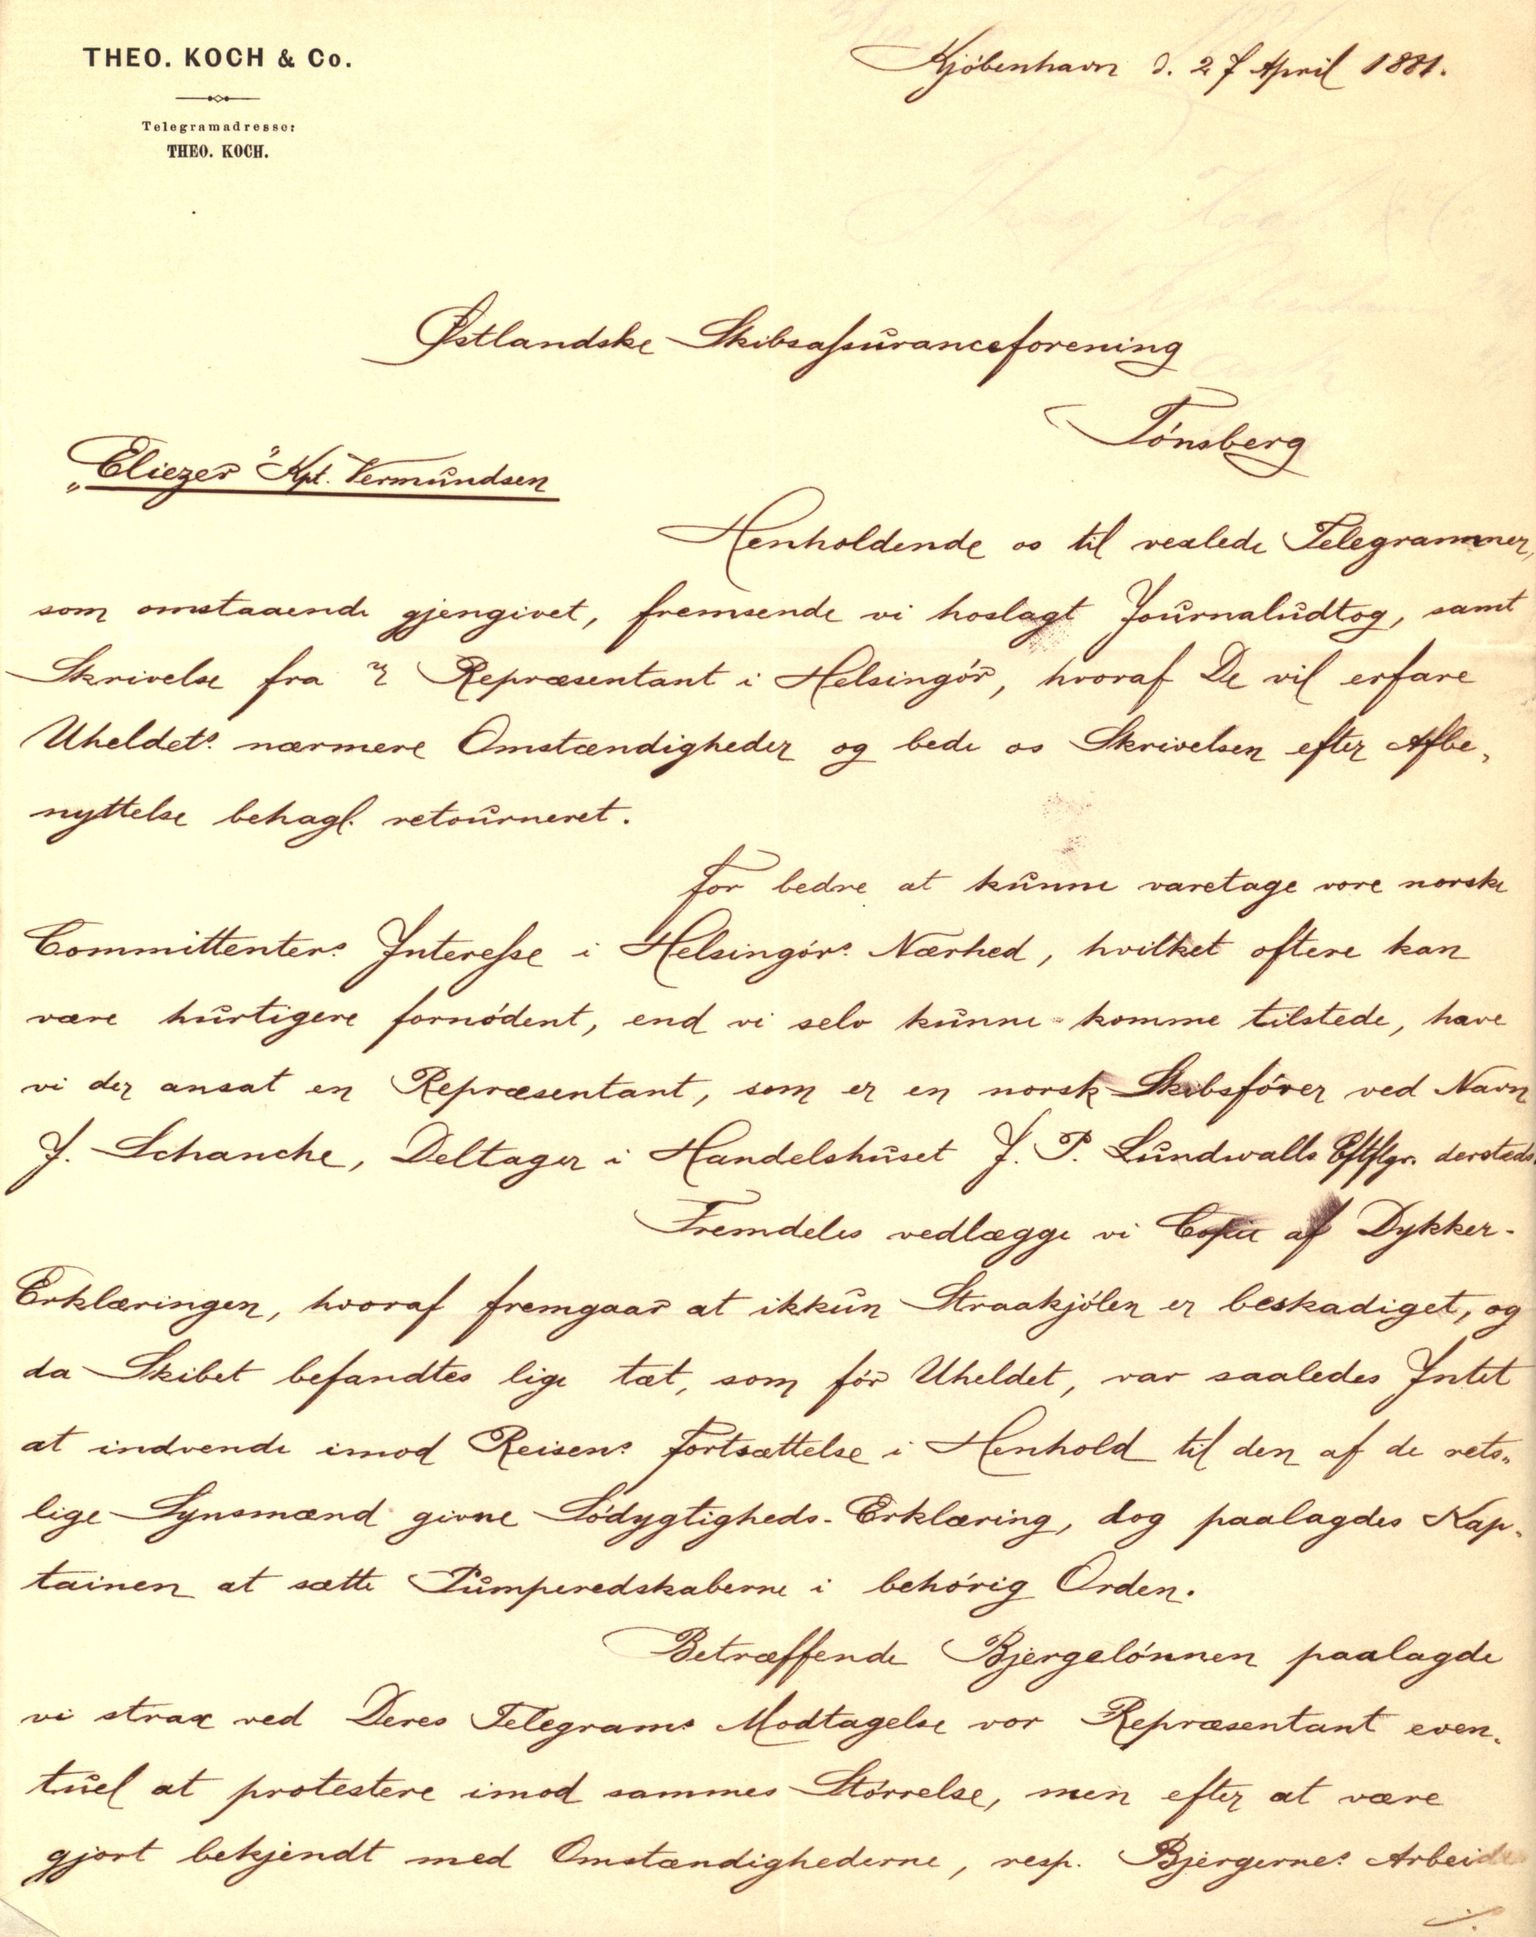 THEO. KOCH & Co.
Telegramadresse:
THEO. KOCH.
Kjóbenhavn d. 27 April 1881.
Østlandske Skibsassuranceforening
Tónsberg
„Eliezer" Kpt. Vermundsen
Henholdende os til vexlede Telegrammer,
som omstaaende gjengivet, fremsende vi hoslagt Journaludtog, samt
Skrivelse fra Repræsentant i Helsingór, hvoraf De vil erfare
Uheldets nærmere Omstændigheder og bede os Skrivelsen efter Afbe-
nyttelse behagl. retourneret.
For bedre at kunne varetage vore norske
Committenters Interesse i Helsingórs Nærhed, hvilket oftere kan
være hurtigere fornódent, end vi selv kunne komme tilstede, have
vi der ansat en Repræsentant, som er en norsk Skibsfórer ved Navn
J. Schanche, Deltager i Handelshuset J. P. Lundwalls Eftflgr. dersteds.
Fremdeles vedlægge vi Copie af Dykker-
Erklæringen, hvoraf fremgaar at ikkun Straakjólen er beskadiget, og
da Skibet befandtes lige tæt, som fór Uheldet, var saaledes Intet
at indvende imod Reisens Fortsættelse i Henhold til den af de rets-
lige Synsmænd givne Södygtigheds-Erklæring, dog paalagdes Kap-
tainen at sætte Pumperedskaberne i behórig Orden.
Betræffende Bjergelónnen paalagde
vi strax ved Deres Telegrams Modtagelse vor Repræsentant even-
tuel at protestere imod sammes Stórrelse, men efter at være
gjort bekjendt med Omstændighederne, resp. Bjergernes Arbeide
./.